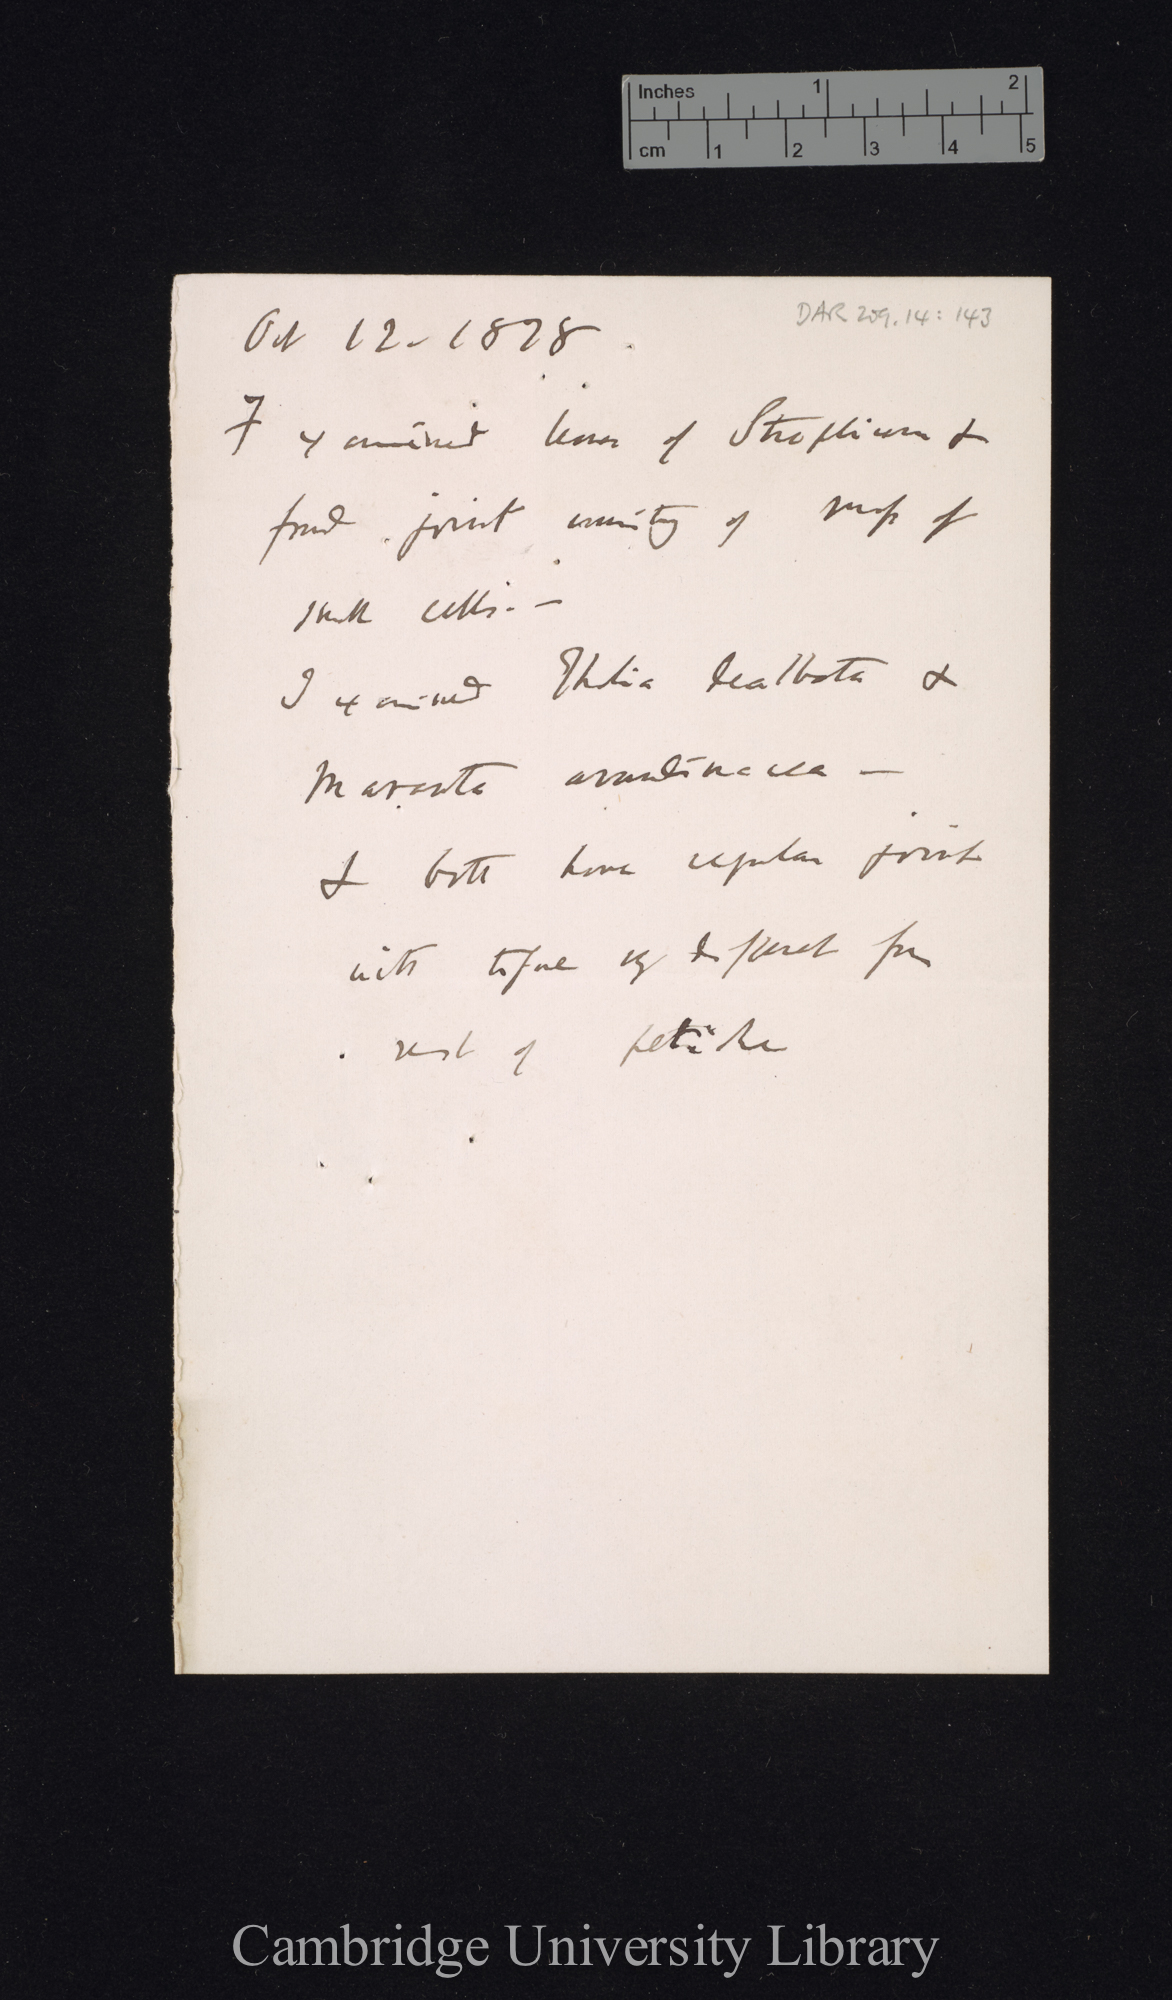 Inches 1 2
cm 1 2 3 4 5
DAR 209.14: 143
Oct 12 - 1878
F examined leaves of Strephium &
found joint consisting of mass of
small cells. —
I examined Thalia dealbata &
Maranta arundinacea —
& both have regular joint
with tissue very different from
rest of petiole
Cambridge University Library